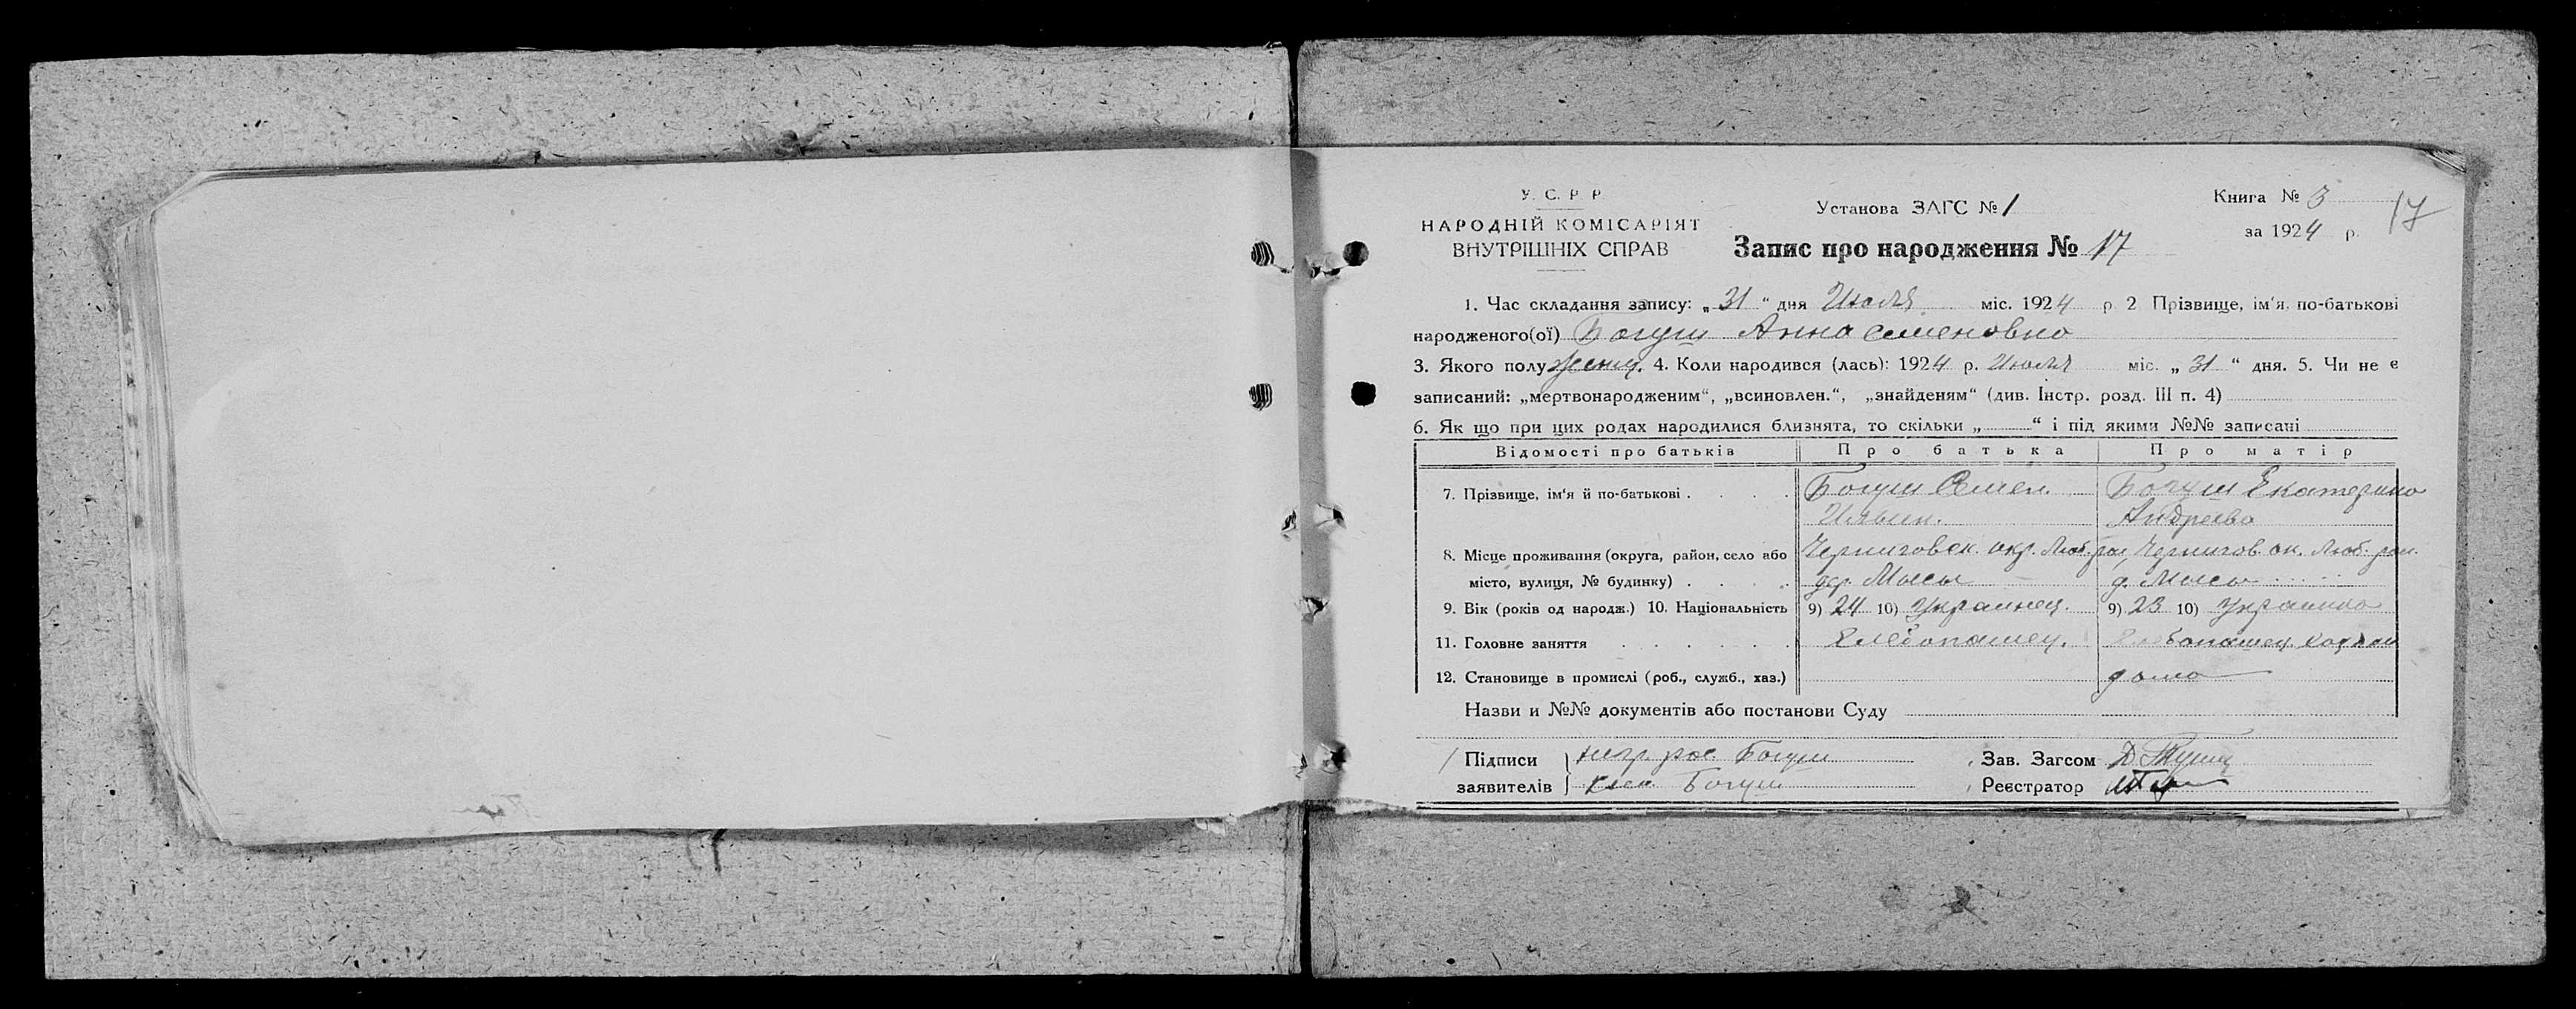 У. С. Р. Р.
НАРОДНІЙ КОМІСАРІЯТ
ВНУТРІШНІХ СПРАВ
Установа ЗАГС № 1
Запис про народження № 17
Книга № 3
17
за 1924 р.
1. Час складання запису: „31“ дня Июля міс. 1924 р. 2 Прізвище, ім‘я, по-батькові
народженого(ої) Богуш Анна Семеновна
3. Якого полу женц. 4. Коли народився (лась): 1924 р. Июля міс. „31“ дня. 5. Чи не є
записаний: „мертвонародженим“, „всиновлен.“, „знайденям“ (див. Інстр. розд. III п. 4)
6. Як що при цих родах народилися близнята, то скільки „ “ і під якими №№ записані
Відомості про батьків Про батька Про матір
7. Прізвище, ім‘я й по-батькові . . . . Богуш Семен. Богуш Екатерина
Ильин. Андреева
8. Місце проживання (округа, район, село або Черниговск. окр. Люб. рай. Чернигов. ок. Люб. рай.
місто, вулиця, № будинку) . . . . дер. Мысы д. Мысы
9. Вік (років од народж.) 10. Національність 9) 24 10) Украинец. 9) 23 10) Украинка
11. Головне заняття . . . . . . Хлебопашец. Хлебопашец.
12. Становище в промислі (роб., служб., хаз.) дома
Назви и №№ документів або постанови Суду
Підписи Богуш Зав. Загсом
заявителів Богуш Реєстратор